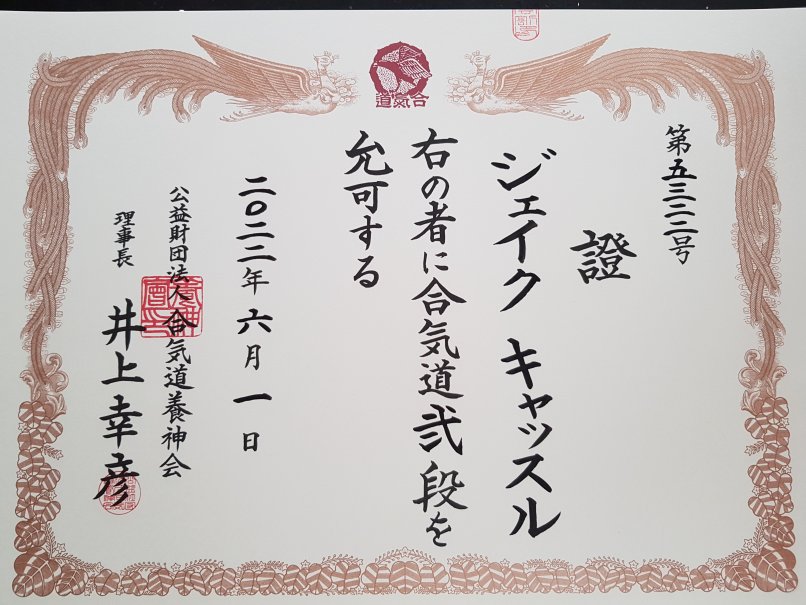 合氣道
第五三二二号
證
ジェイク キャッスル
右の者に合気道弐段を
允可する
二〇二二年六月一日
公益財団法人合気道養神会
理事長 井上幸彦